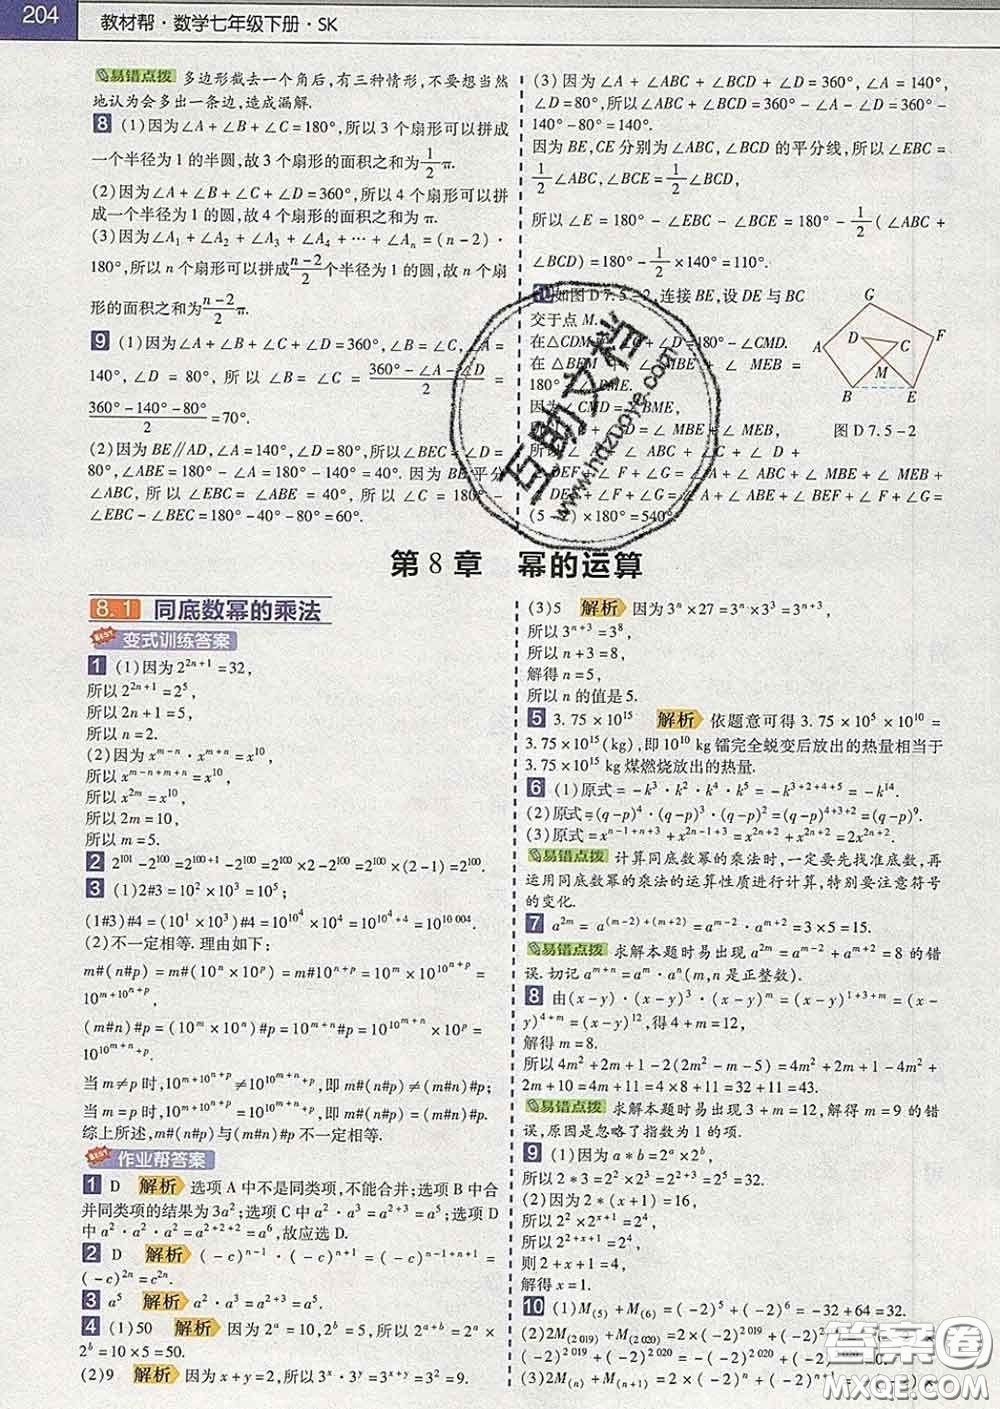 204 教材帮·数学七年级下册·SK
易错点拨 多边形截去一个角后,有三种情形,不要想当然
地认为会多出一条边,造成漏解.
8 (1)因为∠A+∠B+∠C=180°,所以3个扇形可以拼成
一个半径为1的半圆,故3个扇形的面积之和为1/2π.
(2)因为∠A+∠B+∠C+∠D=360°,所以4个扇形可以拼
成一个半径为1的圆,故4个扇形的面积之和为π.
(3)因为∠A₁+∠A₂+∠A₃+∠A₄+…+∠Aₙ=(n-2)·
180°,所以n个扇形可以拼成(n-2)/2个半径为1的圆,故n个扇
形的面积之和为(n-2)/2π.
9 (1)因为∠A+∠B+∠C+∠D=360°,∠B=∠C,∠A=
140°,∠D=80°,所以∠B=∠C=(360°-∠A-∠D)/2=
(360°-140°-80°)/2=70°.
(2)因为BE∥AD,∠A=140°,∠D=80°,所以∠BEC=∠D=
80°,∠ABE=180°-∠A=180°-140°=40°.因为BE平分
∠ABC,所以∠EBC=∠ABE=40°,所以∠C=180°-
∠EBC-∠BEC=180°-40°-80°=60°.
(3)因为∠A+∠ABC+∠BCD+∠D=360°,∠A=140°,
∠D=80°,所以∠ABC+∠BCD=360°-∠A-∠D=360°-
140°-80°=140°.
因为BE,CE分别为∠ABC,∠BCD的平分线,所以∠EBC=
1/2∠ABC,∠BCE=1/2∠BCD,
所以∠E=180°-∠EBC-∠BCE=180°-1/2(∠ABC+
∠BCD)=180°-1/2×140°=110°.
10 如图D7.5-2,连接BE,设DE与BC
交于点M.
在△CDM中,∠C+∠D=180°-∠CMD.
在△BEM中,∠MBE+∠MEB=
180°-∠BME.
因为∠CMD=∠BME,
所以∠C+∠D=∠MBE+∠MEB,
所以∠A+∠ABC+∠C+∠D+
∠DEF+∠F+∠G=∠A+∠ABC+∠MBE+∠MEB+
∠DEF+∠F+∠G=∠A+∠ABE+∠BEF+∠F+∠G=
(5-2)×180°=540°.
G
A
D
C
F
M
B
E
图D7.5-2
互助文档
www.hdzuoye.com
第8章 幂的运算
8.1 同底数幂的乘法
变式训练答案
1 (1)因为2²ⁿ⁺¹=32,
所以2²ⁿ⁺¹=2⁵,
所以2n+1=5,
所以n=2.
(2)因为x^(m-n)·x^(m+n)=x¹⁰,
所以x^(m-n+m+n)=x¹⁰,
所以x^(2m)=x¹⁰,
所以2m=10,
所以m=5.
2 2¹⁰¹-2¹⁰⁰=2¹⁰⁰⁺¹-2¹⁰⁰=2¹⁰⁰×2-2¹⁰⁰=2¹⁰⁰×(2-1)=2¹⁰⁰.
3 (1)2#3=10²×10³=10⁵;
(1#3)#4=(10¹×10³)#4=10^(10⁴)×10⁴=10^(10⁴+4)=10^(10 004).
(2)不一定相等.理由如下:
m#(n#p)=m#(10ⁿ×10^p)=m#10^(n+p)=10^m×10^(10^(n+p))=
10^(m+10^(n+p)),
(m#n)#p=(10^m×10ⁿ)#p=10^(m+n)#p=10^(10^(m+n))×10^p=
10^(10^(m+n)+p).
当m≠p时,10^(m+10^(n+p))≠10^(10^(m+n)+p),即m#(n#p)≠(m#n)#p;
当m=p时,10^(m+10^(n+p))=10^(10^(m+n)+p),即m#(n#p)=(m#n)#p.
综上所述,m#(n#p)与(m#n)#p不一定相等.
作业帮答案
1 D 解析 选项A中不是同类项,不能合并;选项B中合
并同类项的结果为3a²;选项C中a²·a³=a²⁺³=a⁵;选项D
中a²·a²·a²=a²⁺²⁺²=a⁶,故应选D.
2 D 解析 (-c)ⁿ⁻¹·(-c)ⁿ⁺¹=(-c)ⁿ⁻¹⁺ⁿ⁺¹=
(-c)²ⁿ=c²ⁿ.
3 a⁵ 解析 a²·a³=a²⁺³=a⁵.
4 (1)50 解析 因为2^a=10,2^b=5,所以2^(a+b)=2^a×
2^b=10×5=50.
(2)9 解析 因为x+y=2,所以3^x·3^y=3^(x+y)=3²=9.
(3)5 解析 因为3ⁿ×27=3ⁿ×3³=3ⁿ⁺³,
所以3ⁿ⁺³=3⁸,
所以n+3=8,
解得n=5,
所以n的值是5.
5 3.75×10¹⁵ 解析 依题意可得3.75×10⁵×10¹⁰=
3.75×10¹⁵(kg),即10¹⁰ kg镭完全蜕变后放出的热量相当于
3.75×10¹⁵ kg煤燃烧放出的热量.
6 (1)原式=-k³·k²·k⁴·k⁵=-k³⁺²⁺⁴⁺⁵=-k¹⁴.
(2)原式=(q-p)⁴·(q-p)³·(q-p)²=(q-p)⁴⁺³⁺²=(q-p)⁹.
(3)原式=x^(n-1+n+3)+x^(2n-1+3)=x^(2n+2)+x^(2n+2)=2x^(2n+2).
易错点拨 计算同底数幂的乘法时,一定要先找准底数,再
运用同底数幂的乘法的运算性质进行计算,特别要注意符号
的变化.
7 a^(2m)=a^((m-2)+(m+2))=a^(m-2)·a^(m+2)=3×5=15.
易错点拨 求解本题时易出现a^(2m)=a^(m-2)+a^(m+2)=8的错
误.切记a^(m+n)=a^m·aⁿ(m,n是正整数).
8 由(x-y)·(x-y)³·(x-y)^m=(x-y)^(1+3+m)=(x-
y)^(4+m)=(x-y)¹²,得4+m=12,
解得m=8.
所以4m²+2m+1-2(2m²-m-5)=4m²+2m+1-4m²+
2m+10=4m+11=4×8+11=32+11=43.
易错点拨 求解本题时易出现3+m=12,解得m=9的错
误,原因是忽略了指数为1的项.
9 (1)因为a*b=2^a×2^b,
所以2*3=2²×2³=2²⁺³=2⁵=32.
(2)因为2*(x+1)=16,
所以2²×2^(x+1)=2⁴,
所以2^(2+x+1)=2⁴,
则2+x+1=4,
解得x=1.
10 (1)M₍₅₎+M₍₆₎=(-2)⁵+(-2)⁶=-32+64=32.
(2)2M₍₂ ₀₁₉₎+M₍₂ ₀₂₀₎=2×(-2)^(2 019)+(-2)^(2 020)=-
(-2)×(-2)^(2 019)+(-2)^(2 020)=-(-2)^(2 020)+(-2)^(2 020)=0.
(3)2M₍ₙ₎+M₍ₙ₊₁₎=2×(-2)ⁿ+(-2)ⁿ⁺¹=-(-2)×
答案卷
MXQE.COM